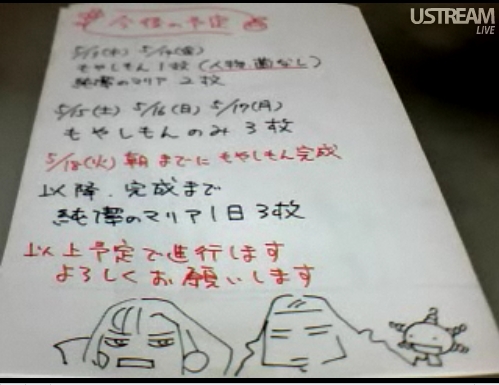 USTREAM
LIVE
今後の予定
5/13(木) 5/14(金)
もやしもん1枚(人物、菌なし)
純潔のマリア 2枚
5/15(土) 5/16(日) 5/17(月)
もやしもんのみ 3枚
5/18(火)朝までにもやしもん完成
以降、完成まで
純潔のマリア1日3枚
以上予定で進行します
よろしくお願いします